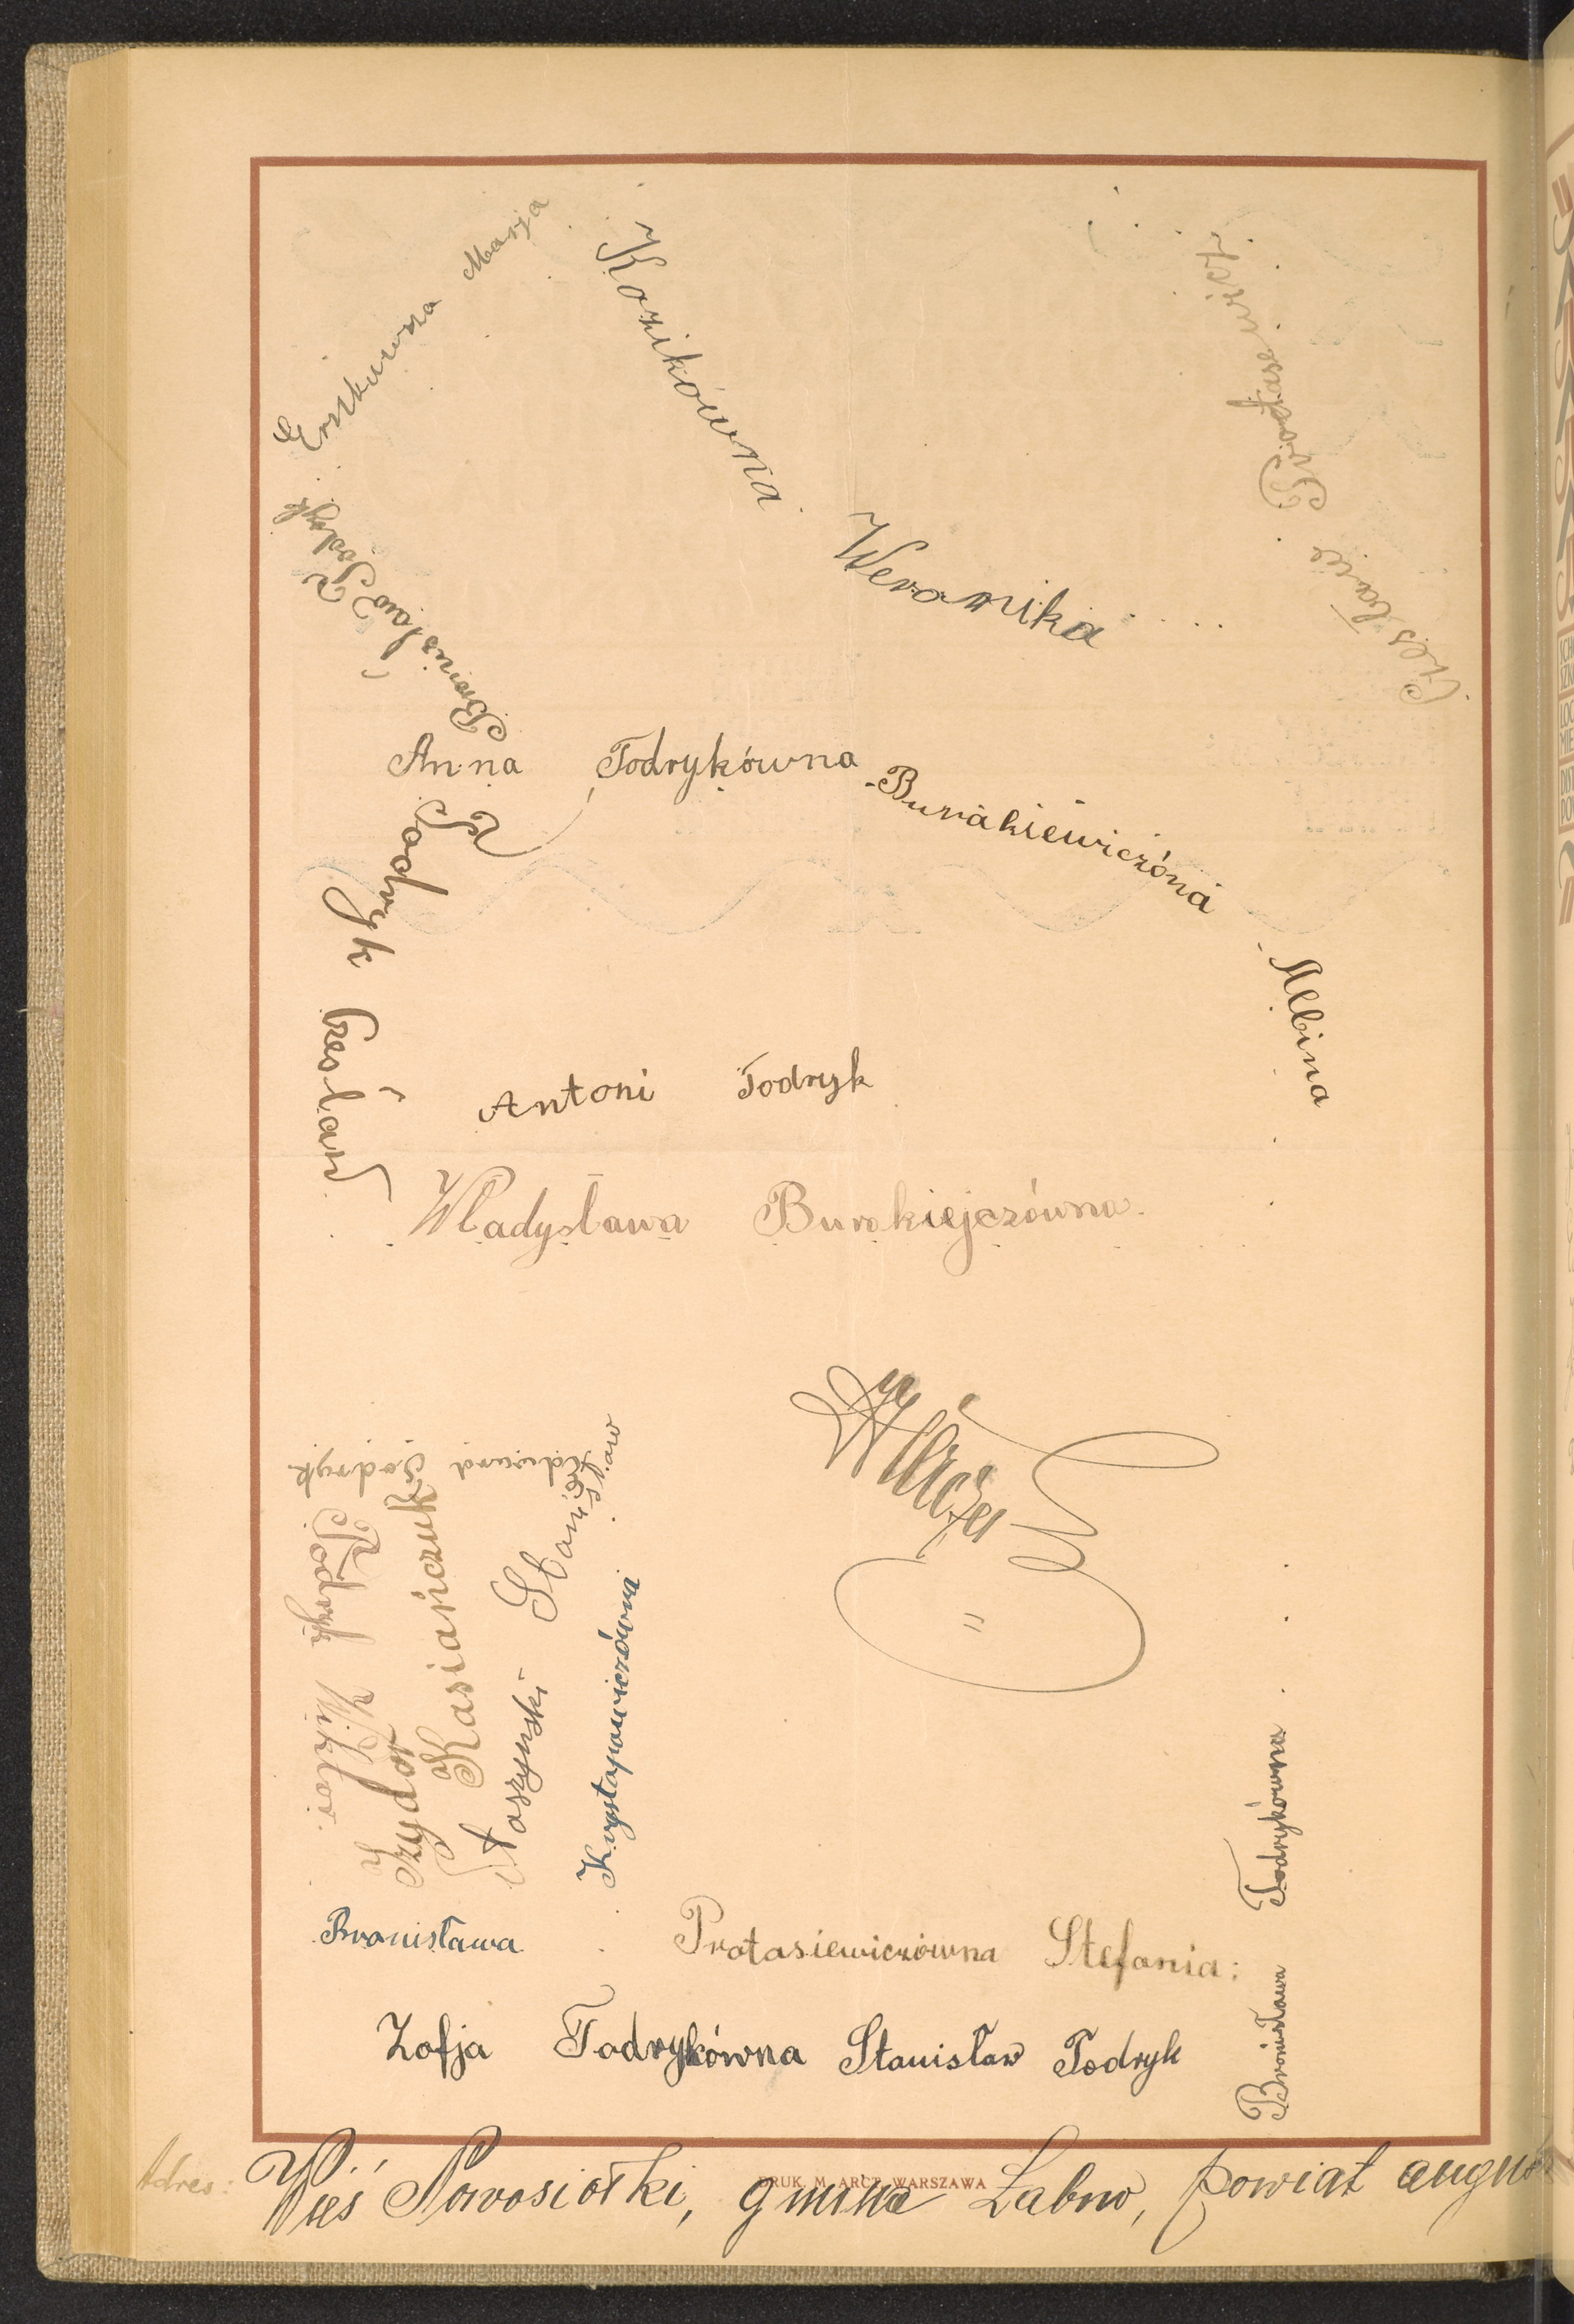 Marja
Kozikówna
Weronika
Protasewicz
Czesław
Bronisław Todryk
Anna Todrykówna
Burakiewiczóna
Albina
Todryk Czesław
Antoni Todryk
Władysława Burakiejczówna.
Edward Todryk
Todryk Wiktor.
Izydor Kasiańczuk
Staszyński Stanisław
Krystapowiczówna
Bronisława
Protasiewiczówna Stefania:
Bronisława Todrykówna
Zofja Todrykówna Stanisław Todryk
Adres: Wieś Nowosiołki, gmina Łabno, powiat
DRUK M. ARCT WARSZAWA